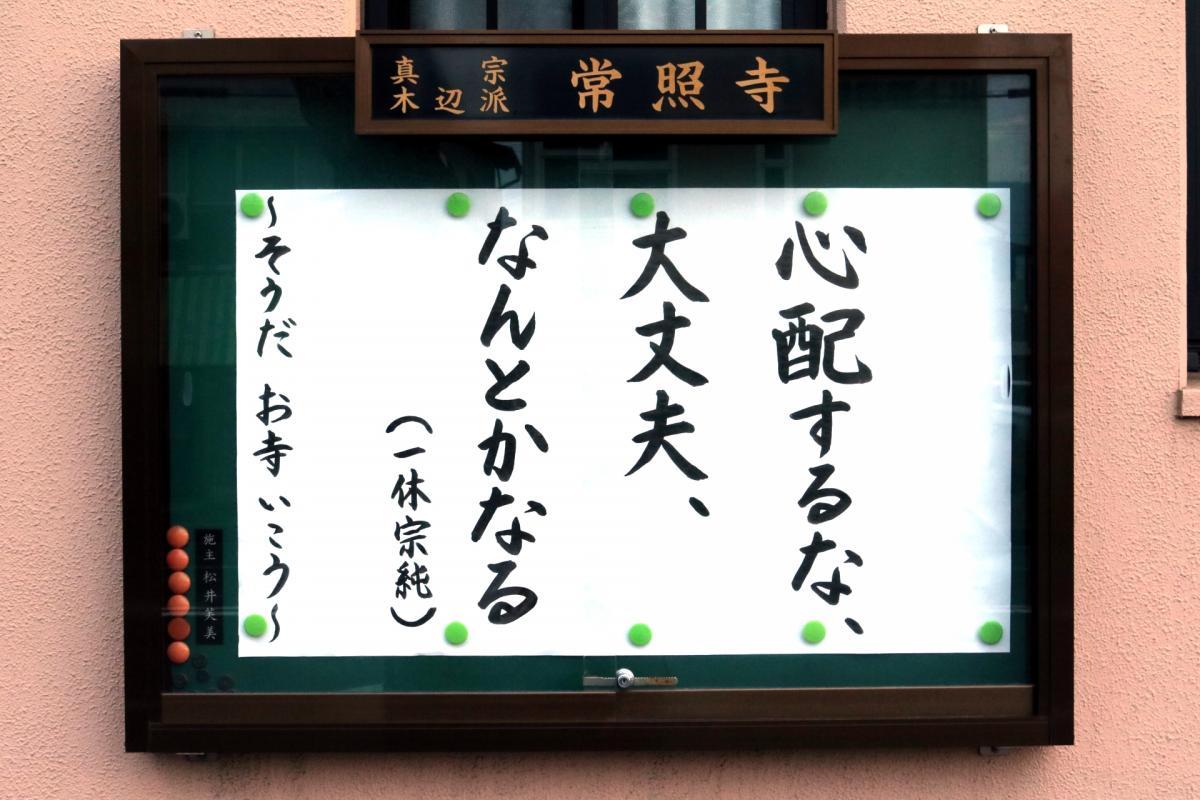 真宗
木辺派
常照寺
心配するな、
大丈夫、
なんとかなる
（一休宗純）
～そうだ お寺 いこう～
施主 松井笑美